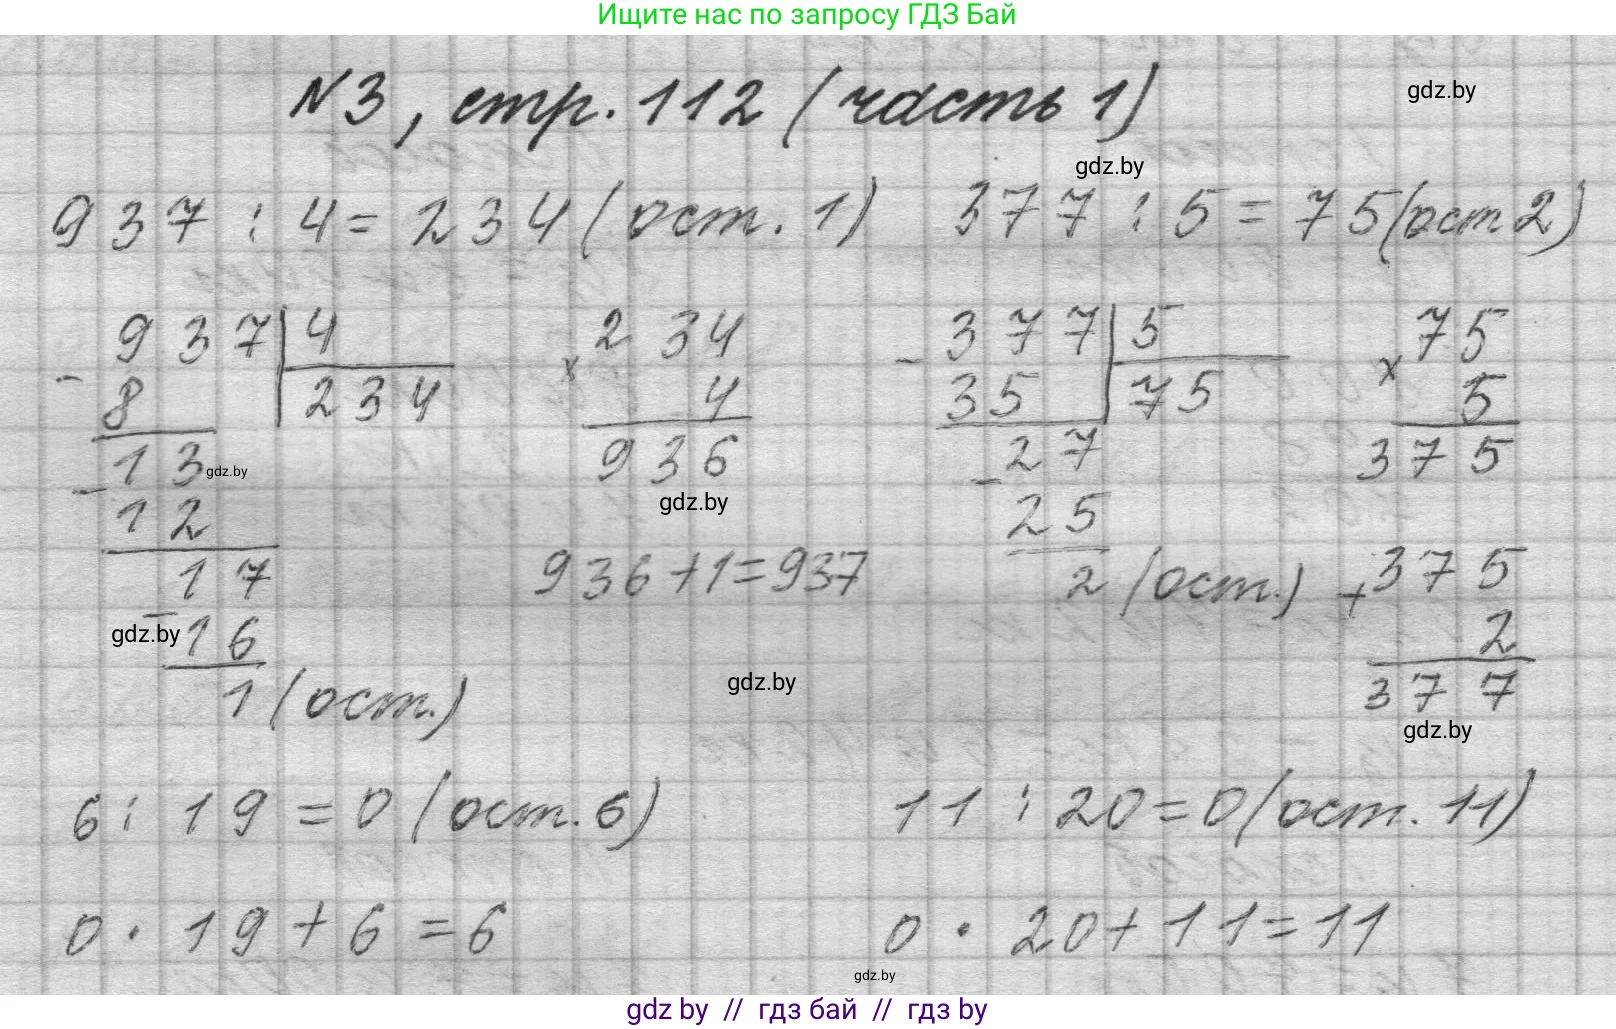 Ищите нас по запросу ГДЗ Бай
N3, стр. 112 (часть 1)
gdz.by
gdz.by
937 : 4 = 234 (ост. 1)
377 : 5 = 75 (ост 2)
937 | 4
- 8
234
13
gdz.by
- 12
17
- 16
gdz.by
1 (ост.)
234
x 4
936
gdz.by
936 + 1 = 937
gdz.by
- 377 | 5
35
75
27
- 25
2 (ост.)
75
x 5
375
375
+ 2
377
gdz.by
6 : 19 = 0 (ост. 6)
11 : 20 = 0 (ост. 11)
0 · 19 + 6 = 6
0 · 20 + 11 = 11
gdz.by
gdz by // гдз бай // гдз by